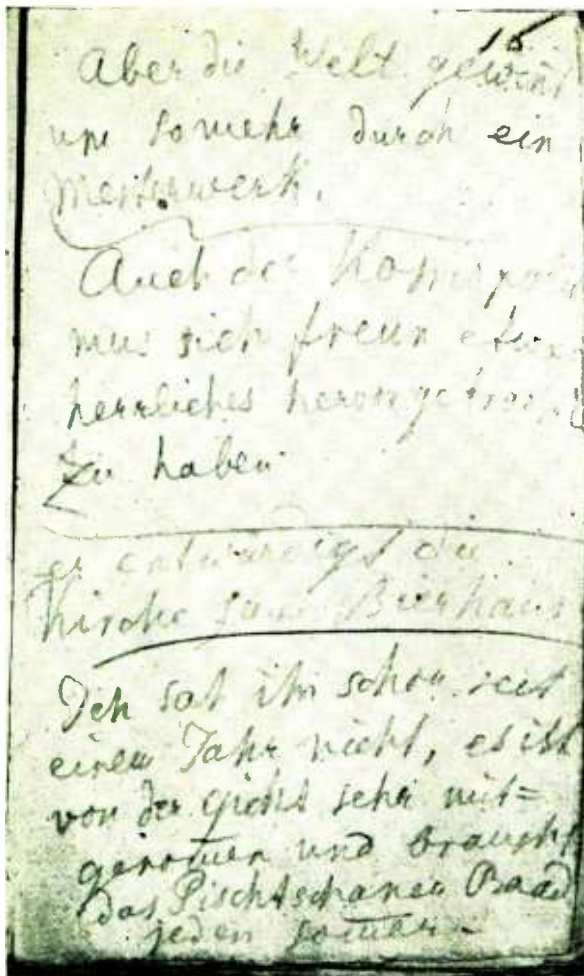 15
Aber die Welt gewint
um somehr durch ein
Meisterwerk.
Auch der Komepolit
mus sich freun etwas
herrliches
zu haben
er entwürdigt die
Kirche zum Bierhaus
Ich sah ihn schon seit
einem Jahr nicht, es ist
von der Gicht sehr mit=
genomen und braucht
das Pischtschaner Baad
jeden somer